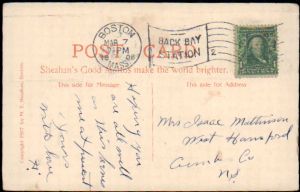 BOSTON
MAR 7
PM
MASS.
BACK BAY
STATION
2
POST CARD
Sheahan's Good Mottos make the world brighter.
This side for Message.
This side for Address.
Hoping you
are all well
as this leaves
me at present
Yours
with love
Mrs Isaac Mathison
West Hansford
Cumb Co
NJ
Copyright 1907 by M. T. Sheahan, Boston.